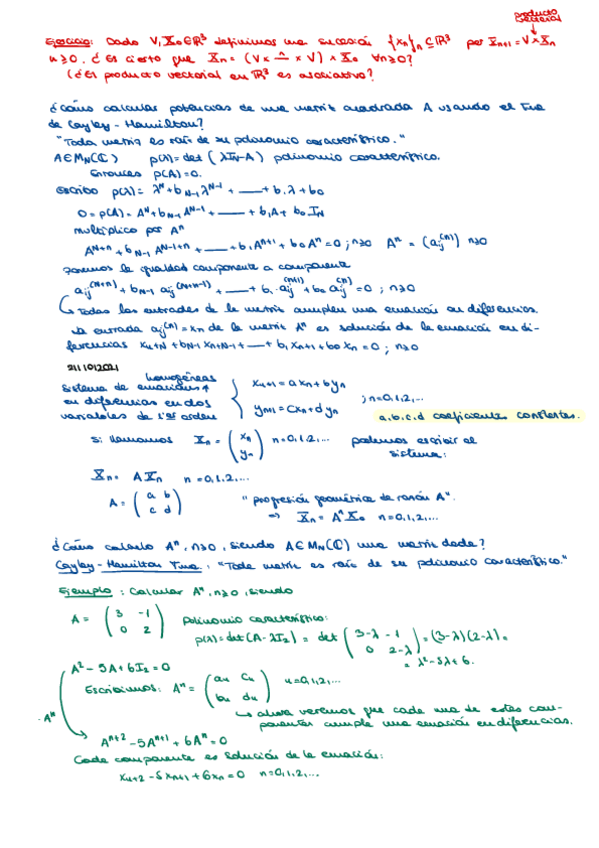 producto vectorial
Ejercicio: Dado V, X₀ ∈ ℝ³ definimos una sucesión {xₙ}ₙ ⊆ ℝ³ por Xₙ₊₁ = V × Xₙ
n≥0. ¿Es cierto que Xₙ = (V × ⋯ⁿ × V) ∧ X₀ ∀n≥0?
(¿El producto vectorial en ℝ³ es asociativo?
¿Cómo calcular potencias de una matriz cuadrada A usando el Tma
de Cayley-Hamilton?
"Toda matriz es raíz de su polinomio característico."
A∈M_N(ℂ) p(λ) = det (λI_N - A) polinomio característico.
Entonces p(A)=0.
Escribo p(λ) = λᴺ + b_{N-1} λᴺ⁻¹ + —— + b₁λ + b₀
0 = p(A) = Aᴺ + b_{N-1} Aᴺ⁻¹ + —— + b₁A + b₀ I_N
multiplico por Aⁿ
Aᴺ⁺ⁿ + b_{N-1} Aᴺ⁻¹⁺ⁿ + —— + b₁Aⁿ⁺¹ + b₀Aⁿ = 0 ; n≥0 Aⁿ = (a_{ij}⁽ⁿ⁾) n≥0
ponemos la igualdad componente a componente
a_{ij}⁽ᴺ⁺ⁿ⁾ + b_{N-1} a_{ij}⁽ᴺ⁺ⁿ⁻¹⁾ + —— + b₁ a_{ij}⁽ⁿ⁺¹⁾ + b₀ a_{ij}⁽ⁿ⁾ = 0 ; n≥0
↳ Todas las entradas de la matriz cumplen una ecuación en diferencias.
La entrada a_{ij}⁽ⁿ⁾ = xₙ de la matriz Aⁿ es solución de la ecuación en di-
ferencias x_{n+N} + b_{N-1} x_{n+N-1} + —— + b₁ xₙ₊₁ + b₀ xₙ = 0 ; n≥0
21/10/2021
homogéneas
Sistema de ecuaciones
en diferencias en dos
variables de 1er orden
xₙ₊₁ = axₙ + byₙ
yₙ₊₁ = cxₙ + dyₙ ; n=0,1,2,...
a,b,c,d coeficientes constantes.
Si llamamos Xₙ = (xₙ yₙ) n=0,1,2,... podemos escribir el
sistema:
Xₙ = A Xₙ n=0,1,2,...
A = (a b c d) "progresión geométrica de razón A".
⇒ Xₙ = AⁿX₀ n=0,1,2,...
¿Cómo calculo Aⁿ, n≥0, siendo A∈M_N(ℂ) una matriz dada?
Cayley-Hamilton Tma: "Toda matriz es raíz de su polinomio característico."
Ejemplo: Calcular Aⁿ, n≥0, siendo
A = (3 -1 0 2) polinomio característico:
p(λ) = det(A-λI₂) = det (3-λ -1 0 2-λ) = (3-λ)(2-λ) =
= λ² - 5λ + 6.
A² - 5A + 6I₂ = 0
Escribimos: Aⁿ = (aₙ cₙ bₙ dₙ) n=0,1,2,...
·Aⁿ
↳ ahora veremos que cada una de estas com-
ponentes cumple una ecuación en diferencias.
Aⁿ⁺² - 5Aⁿ⁺¹ + 6Aⁿ = 0
Cada componente es solución de la ecuación:
xₙ₊₂ - 5xₙ₊₁ + 6xₙ = 0 n=0,1,2,...